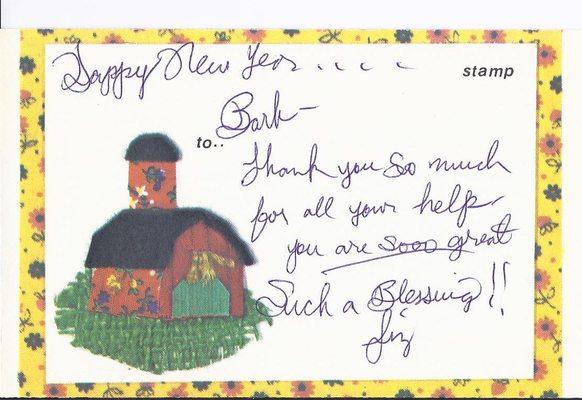 Happy New Year . . . .
stamp
to..
Barb-
Thank you so much
for all your help.
you are sooo great
Such a Blessing!!
Liz